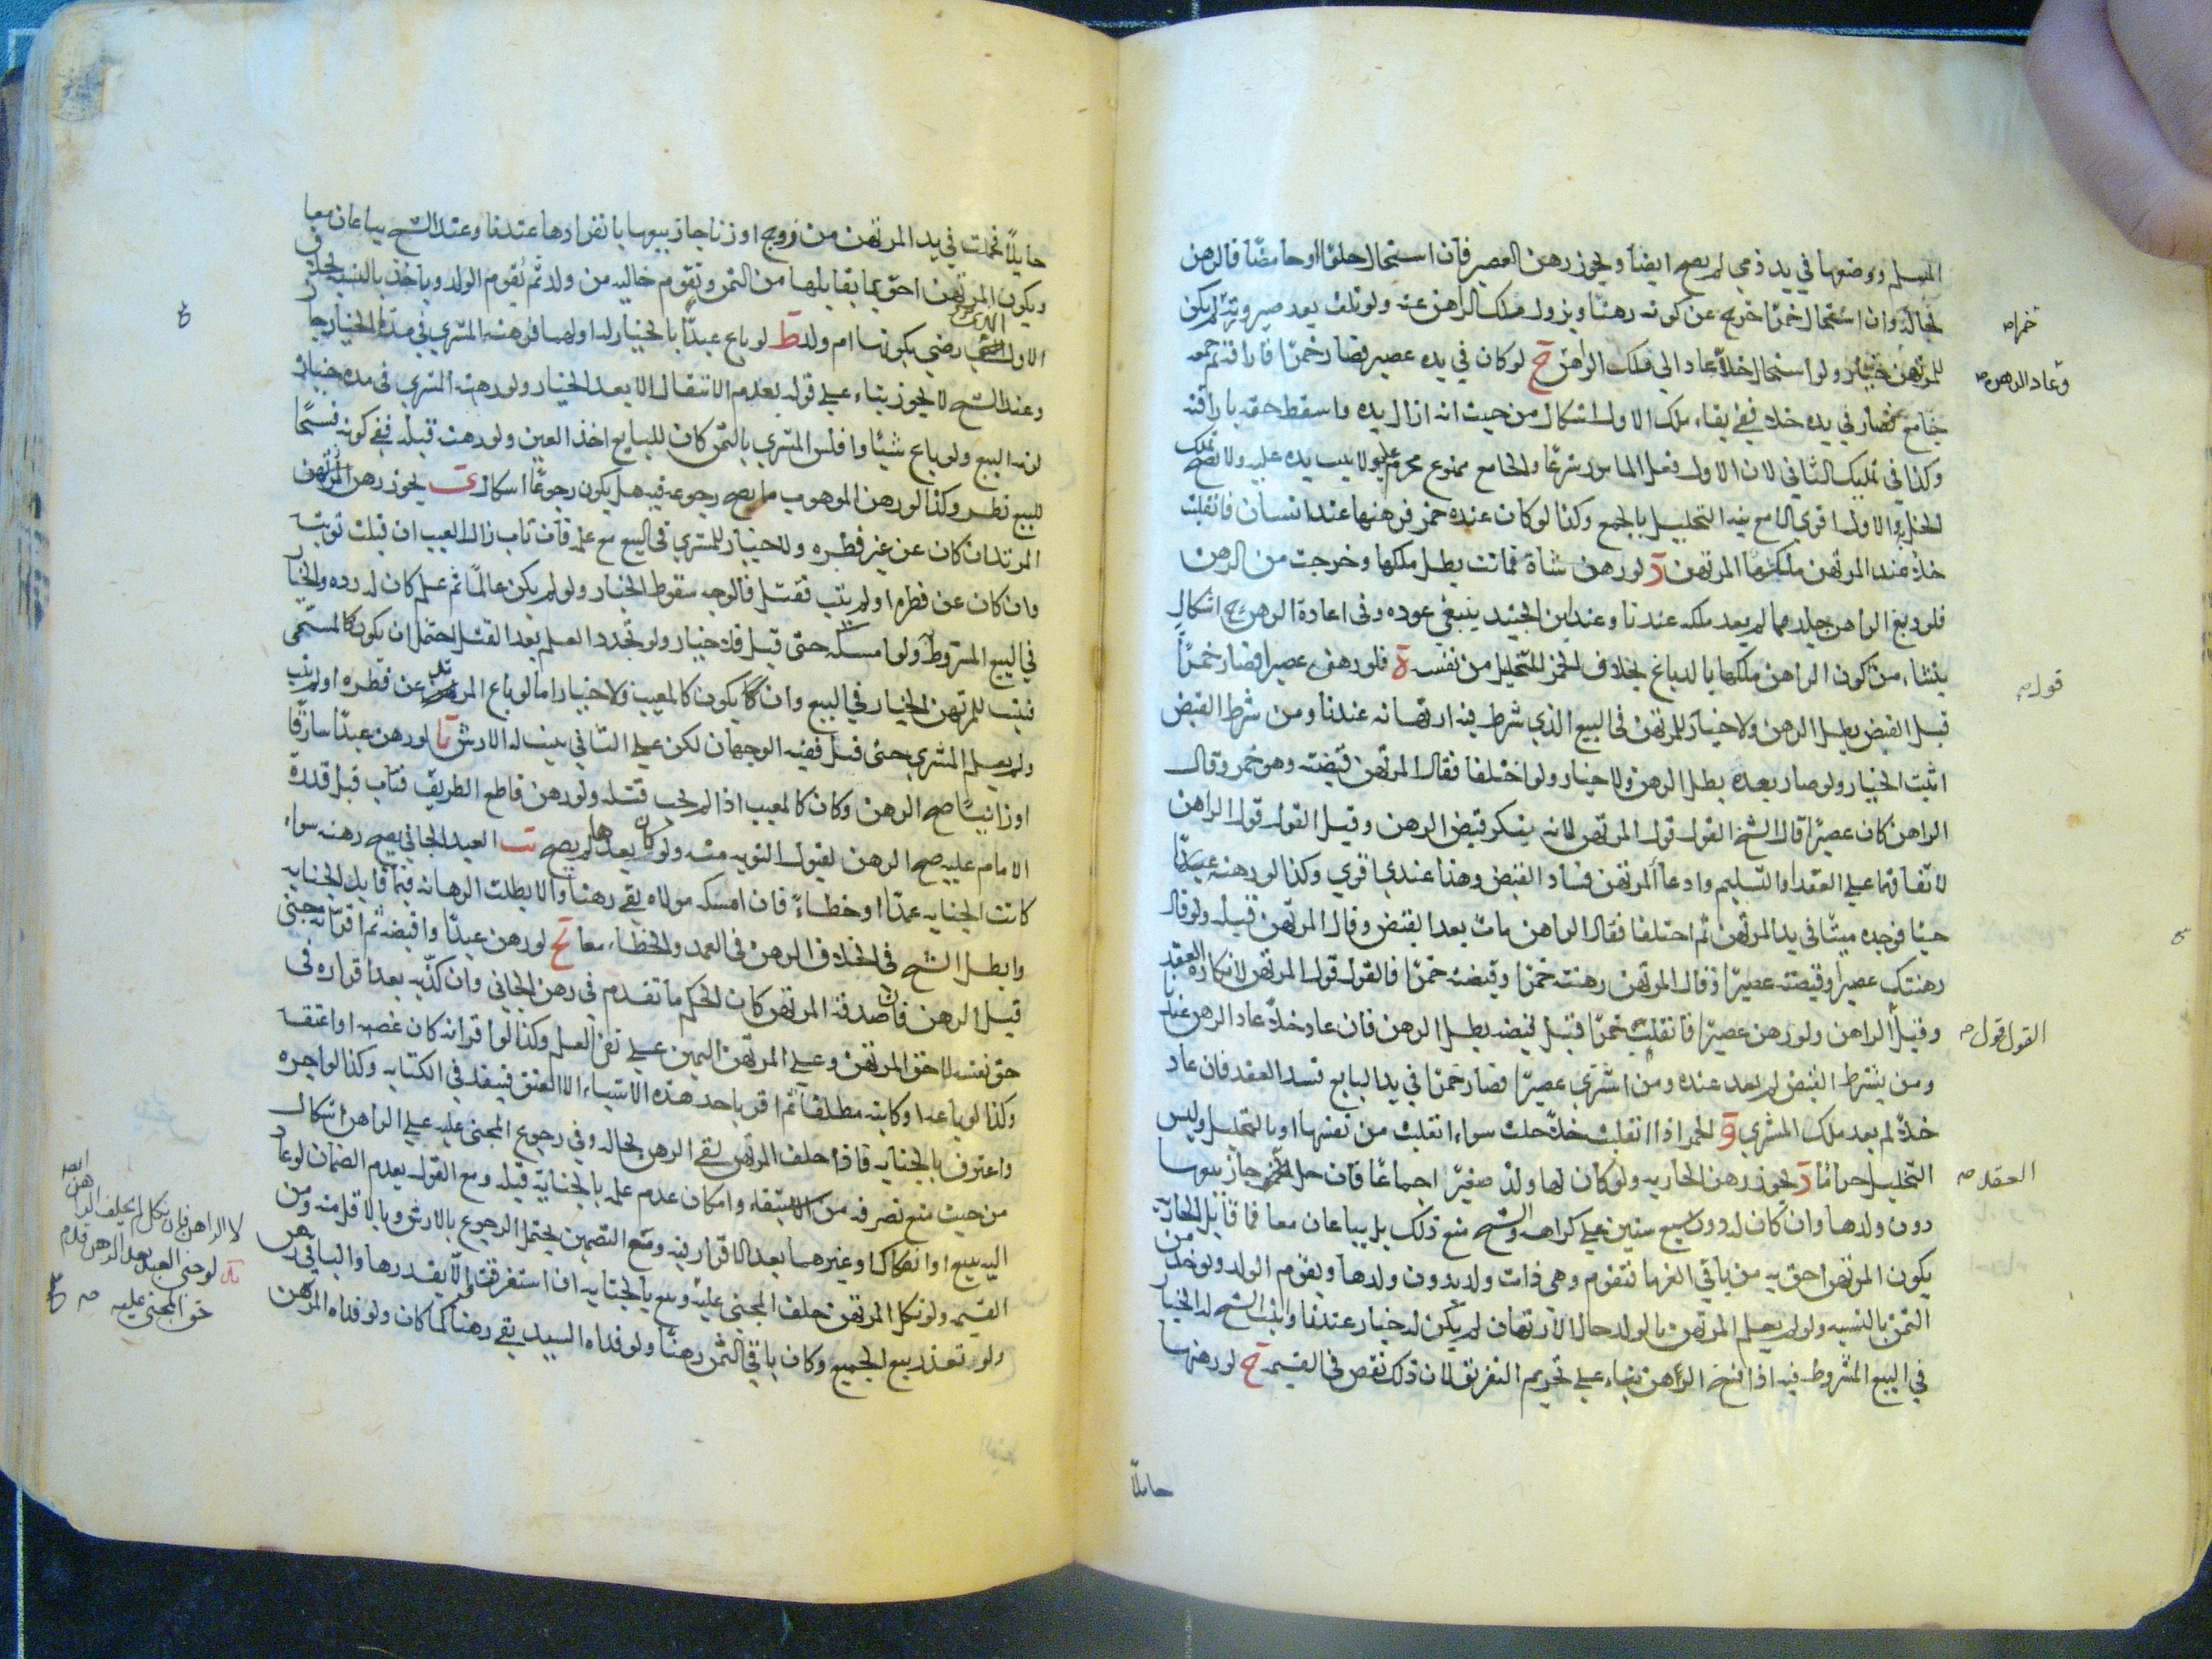 المسلم ووضعها في يد ذمي لم يصح ايضا ويجوز رهن العصير فان استحال خلا او حامضا فالرهن
بحاله وان استحال خمرا خرج عن كونه رهنا ويزول ملك الراهن عنه ولو تلف بعد صيرورته لم يكن
خمرا صح
للمرتهن خيار ولو استحال خلا عاد الى ملك الراهن ج لو كان في يده عصير فصار خمرا فاراقه فجمعه
وعاد الرهن صح
جامع فصار في يده خلا ففي بقاء ملك الاول اشكال من حيث انه ازال يده واسقط حقه باراقته
وكذا في تمليك الثاني لان الاول فعل المامور شرعا والجامع ممنوع محرم عليه ولا يثبت يده عليه ولا يصح تملك
الخمر والاول اقوى الا مع نية التخليل بالجمع وكذا لو كان عنده خمر فرهنها عند انسان فانقلبت
خلا عند المرتهن ملكها المرتهن د لو رهن شاة فماتت بطل ملكها وخرجت من الرهن
فلو دبغ الراهن جلدها لم يعد ملكه عندنا وعند ابن الجنيد ينبغي عوده وفي اعادة الرهن ح اشكال
ينشاء من كون الراهن ملكها بالدباغ بخلاف الخمر المتخلل من نفسه ه فلو رهن عصيرا فصار خمرا
قبل القبض بطل الرهن ولا خيار للمرتهن في البيع الذي شرط فيه ارتهانه عندنا ومن شرط القبض
اثبت الخيار ولو صار بعده بطل الرهن ولا خيار ولو اختلفا فقال المرتهن قبضته وهو خمر وقال
الراهن كان عصيرا قال الشيخ القول قول المرتهن لانه ينكر قبض الرهن وقيل القول قول الراهن
لاتفاقهما على العقد والتسليم وادعا المرتهن فساد القبض وهذا عندي اقوى وكذا لو رهنه عبدا
حيا فوجده ميتا في يد المرتهن ثم اختلفا فقال الراهن مات بعد القبض وقال المرتهن قبله ولو قال
رهنتك عصيرا وقبضته عصيرا فقال المرتهن رهنته خمرا وقبضته خمرا فالقول قول المرتهن لانكاره العقد
وقيل الراهن ولو رهن عصيرا فانقلبت خمرا قبل قبضه بطل الرهن فان عاد خلا عاد الرهن عندنا
القول قول صح
ومن يشترط القبض لم يعد عنده ومن اشترى عصيرا فصار خمرا في يد البايع فسد العقد فان عاد
خلا لم يعد ملك المشتري و الخمر اذا انقلبت خلا حلت سواء انقلبت من نفسها او بالتخليل وليس
العقد صح
التخليل حراما ز يجوز رهن الجارية ولو كان لها ولد صغير اجماعا فان حل جاز بيعها
دون ولدها وان كان له دون سبع سنين على كراهه والشيخ منع ذلك بل يباعان معا فما قابل الجارية
يكون المرتهن احق به من باقي الغرما فتقوم وهي ذات ولد بدون ولدها ويقوم الولد ويوخذ من
الثمن بالنسبه ولو لم يعلم المرتهن بالولد حال الارتهان لم يكن له خيار عندنا واثبت الشيخ له الخيار
في البيع المشروط فيه اذا فسخ الراهن بناء على تحريم التفريق لان ذلك نقص في القيمة ح لو رهنها
حاملا
حايلا فحملت في يد المرتهن من زوج او زنا جاز بيعها بانفرادها عندنا وعند الشيخ يباعان معا
ويكون المرتهن احق بما يقابلها من الثمن وتقوم خاليه من ولد ثم يقوم الولد وياخذ بالنسبه بخلاف
الاول رضي بكونها ام ولد ط لو باع عبدا بالخيار له او لهما فرهنه المشتري في مدة الخيار جاز
وعند الشيخ لا يجوز بناء على قوله بعدم الانتقال الا بعد الخيار ولو رهنه المشتري في مده خياره
لزم البيع ولو باع شيئا وافلس المشتري بالثمن كان للبايع اخذ العين ولو رهنه قبله ففي كونه فسخا
للبيع نظر وكذا لو رهن الموهوب ما يصح رجوعه فيه هل يكون رجوعا اشكال ى يجوز رهن المرتد
المرتد ان كان عن غير فطره ولا خيار للمشتري في البيع مع علمه فان تاب زال العيب ان قبلت توبته
وان كان عن فطره او لم يتب فقتل فالوجه سقوط الخيار ولو لم يكن عالما ثم علم كان له رده والخيار
في البيع المشروط ولو امسكه حتى قتل فلا خيار ولو تجدد العلم بعد القتل احتمل ان يكون كالمستحق
فيثبت للمرتهن الخيار في البيع وان يكون كالمعيب ولا خيار اما لو باع المرتد عن فطره او لم يتب
ولم يعلم المشتري حتى قتل ففيه الوجهان لكن على الثاني يثبت له الارش يا لو رهن عبدا سارقا
او زانيا صح الرهن وكان كالمعيب اذا لم يجب قتله ولو رهن قاطع الطريق فتاب قبل قدرة
الامام عليه صح الرهن لقبول التوبه منه ولو كان بعدها لم يصح يب العبد الجاني يصح رهنه سواء
كانت الجنايه عمدا او خطاء فان امسكه مولاه بقي رهنا والا بطلت الرهانه فيما قابل الجنايه
وابطل الشيخ في الخلاف الرهن في العمد والخطاء معا يج لو رهن عبدا واقبضه ثم اقر انه جنى
قبل الرهن فان صدقه المرتهن كان الحكم ما تقدم في رهن الجاني وان كذبه بعد اقراره في
حق نفسه لا حق المرتهن وعلى المرتهن اليمين على نفي العلم وكذا لو اقر انه كان غصبه او اعتقه
وكذا لو باعه او كاتبه مطلقا ثم اقر باحد هذه الاشياء الا العتق فينفذ في الكتابه وكذا لو اجره
واعترف بالجنايه فاذا حلف المرتهن بقي الرهن بحاله وفي رجوع المجنى عليه على الراهن اشكال
من حيث منع تصرفه من الاستيفاء وامكان عدم علمه بالجناية قبله ومع القول بعدم الضمان لو عاد
اليه ببيع او انفكاك او غيرهما بعد الاقرار فيه ومع التضمين يحتمل الرجوع بالارش وبالاقل منه ومن
القيمه ولو نكل المرتهن حلف المجنى عليه وبيع بالجنايه ان استغرقت والا بقدرها والباقي رهن
ولو تعذر بيع الجميع وكان باقي الثمن رهنا ولو فداه السيد بقي رهنا كما كان ولو فداه المرتهن
لا الراهن فان نكل لم يحلف الراهن ايضا
يد لو جنى العبد بعد الرهن قدم
حق المجنى عليه صح